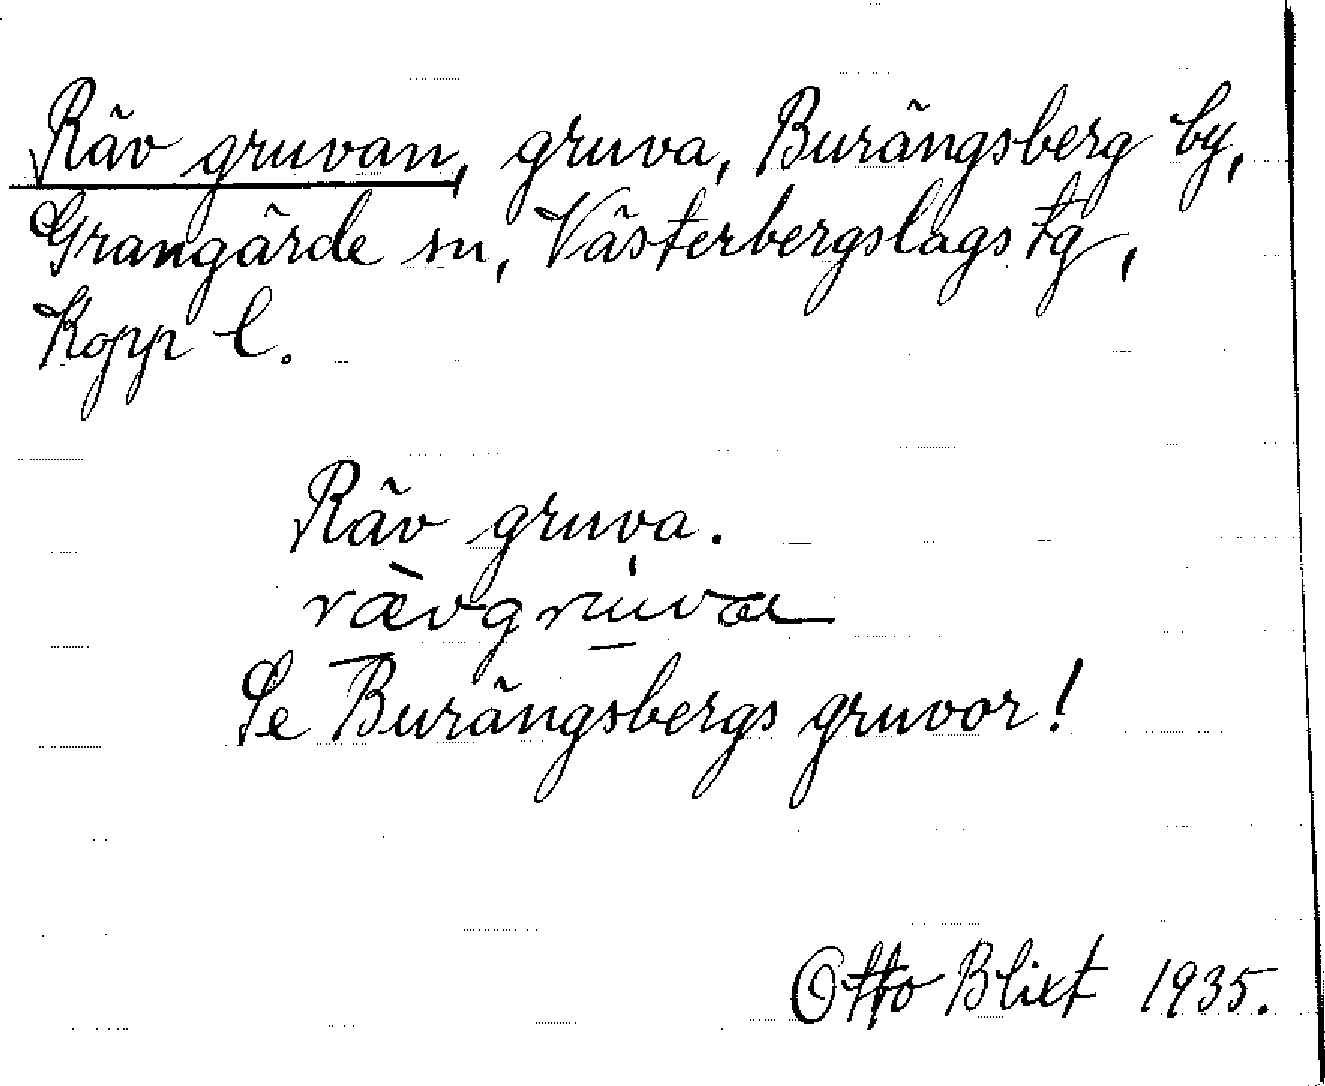 Räv gruvan, gruva, Burängsberg by,
Grangärde sn, Västerbergslags tg,
Kopp l.
Räv gruva.
rævgruva
Se Burängsbergs gruvor!
Otto Blixt 1935.